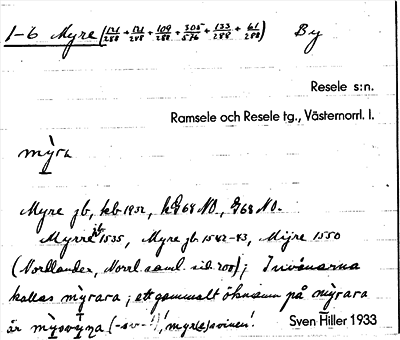 1-6 Myre (121/288 + 121/288 + 109/288 + 305/576 + 133/288 + 61/288) By
Resele s:n.
Ramsele och Resele tg., Västernorrl. l.
mỳra
Myre jb, kb 1932, 68 NO.
Myrre jb 1535, Myre jb 1542-43, Mijre 1550
(Nordlander, Norrl. saml. sid. 200); Invånarna
kallas mỳrara; ett gammalt öknamn på mỳrara
är (-sv-!), myr(e)svinen!
Sven Hiller 1933